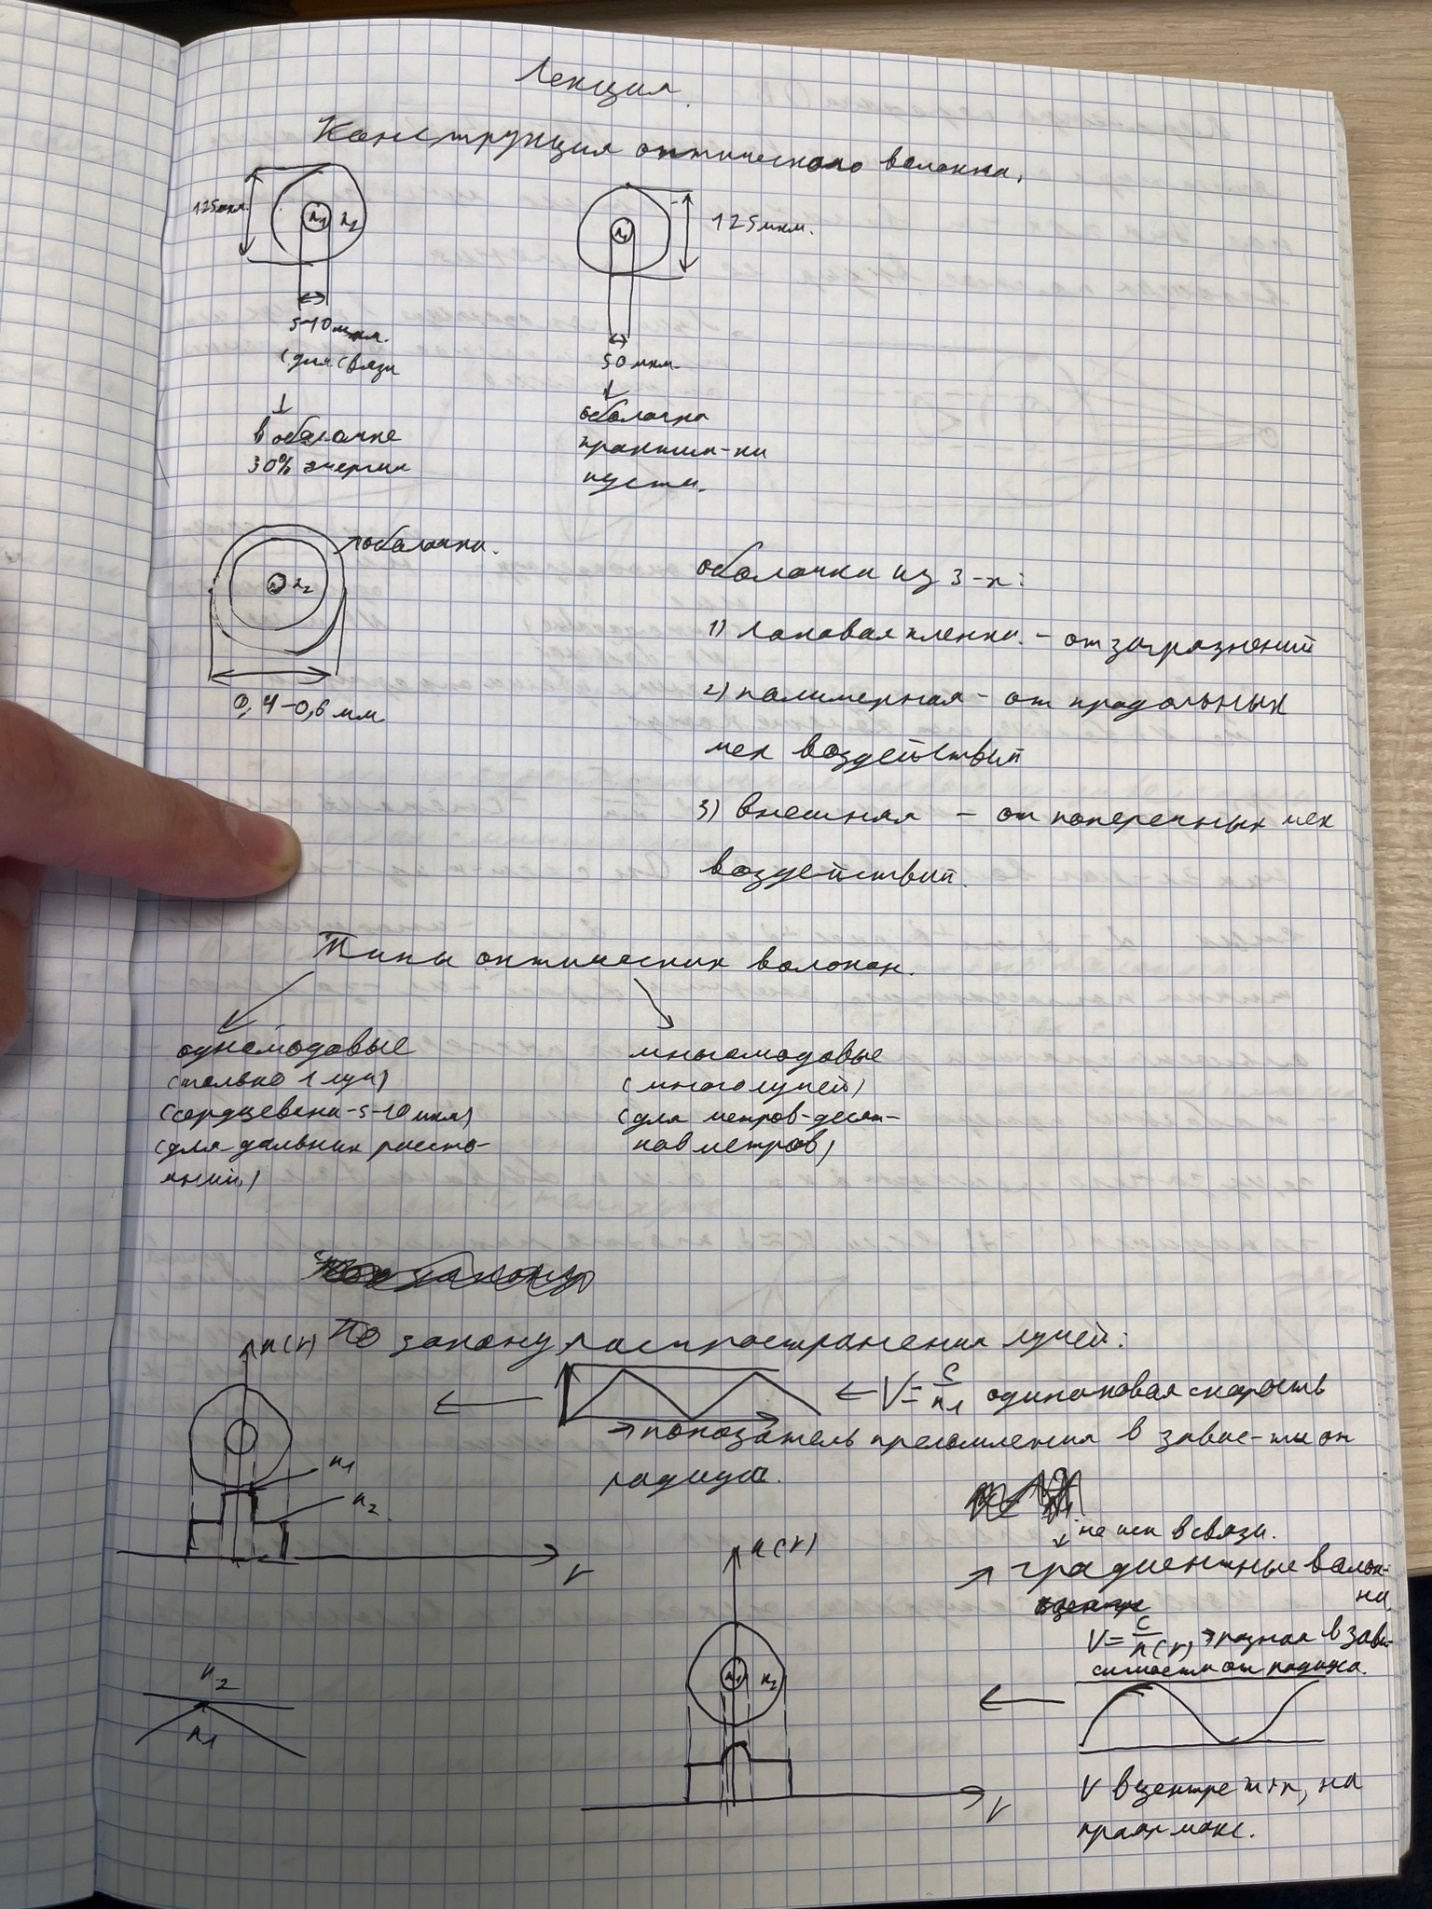 Лекция.
Конструкция оптического волокна.
125мкм.
n1
n2
5-10 мкм.
(для связи
↓
в оболочке
30% энергии
n1
125 мкм.
50 мкм.
↓
оболочка
практич-ки
пуста.
→оболочка.
n2
0,4-0,6 мм
оболочка из 3-х:
1) лаковая пленка. - от загрязнений
2) полимерная - от продольных
мех воздействий
3) внешняя - от поперечных мех
воздействий.
Типы оптических волокон.
одномодовые
(только 1 луч)
(сердцевина-5-10 мкм)
(для дальних рассто-
яний)
многомодовые
(много лучей)
(для метров-десят-
ков метров)
По закону распространения лучей:
n(r)
← V = c/n1 одинаковая скорость
→показатель преломления в завис-ти от
радиуса.
n1
n2
r
не исп в связи.
↓
→ градиентные волок-
на.
V = c/n(r) → разная в зави-
симости от радиуса.
n(r)
n1
n2
r
n2
n1
V в центре min, на
краях макс.